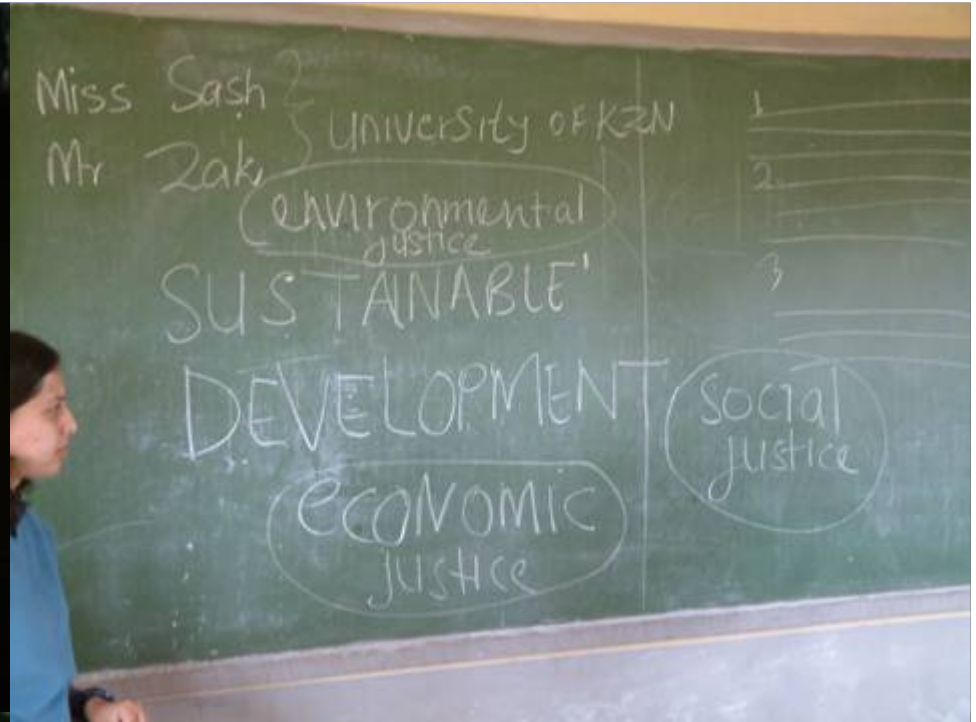 Miss Sash
Mr Zak
University OF KZN
environmental
justice
SUSTANABLE
DEVELOPMENT
economic
justice
social
justice
1
2.
3